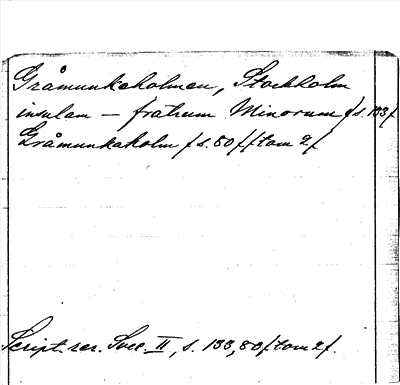 Gråmunkaholmen, Stockholm
insulam — fratrum Minorum /s. 133/
Gråmunkaholm /s. 80 / /tom 2/
Script. rer. Svec. II, s. 133, 80 /tom 2/.